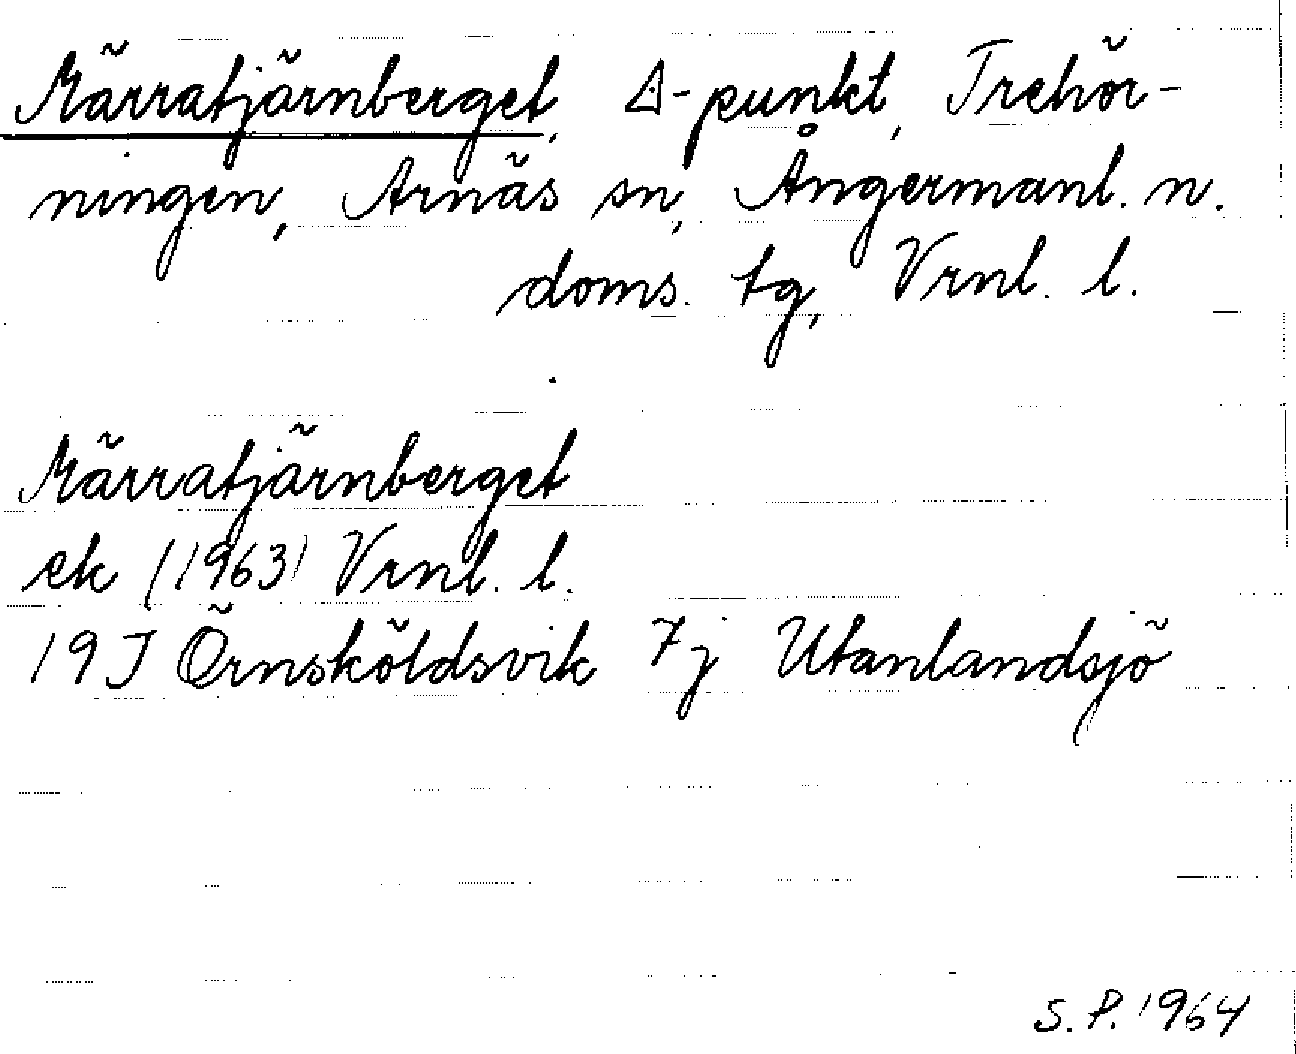 Märratjärnberget, Δ-punkt, Trehör-
ningen, Arnäs sn, Ångermanl. n.
doms. tg, Vrnl. l.
Märratjärnberget
ek (1963) Vrnl. l.
19J Örnsköldsvik 7j Utanlandsjö
S.P. 1964